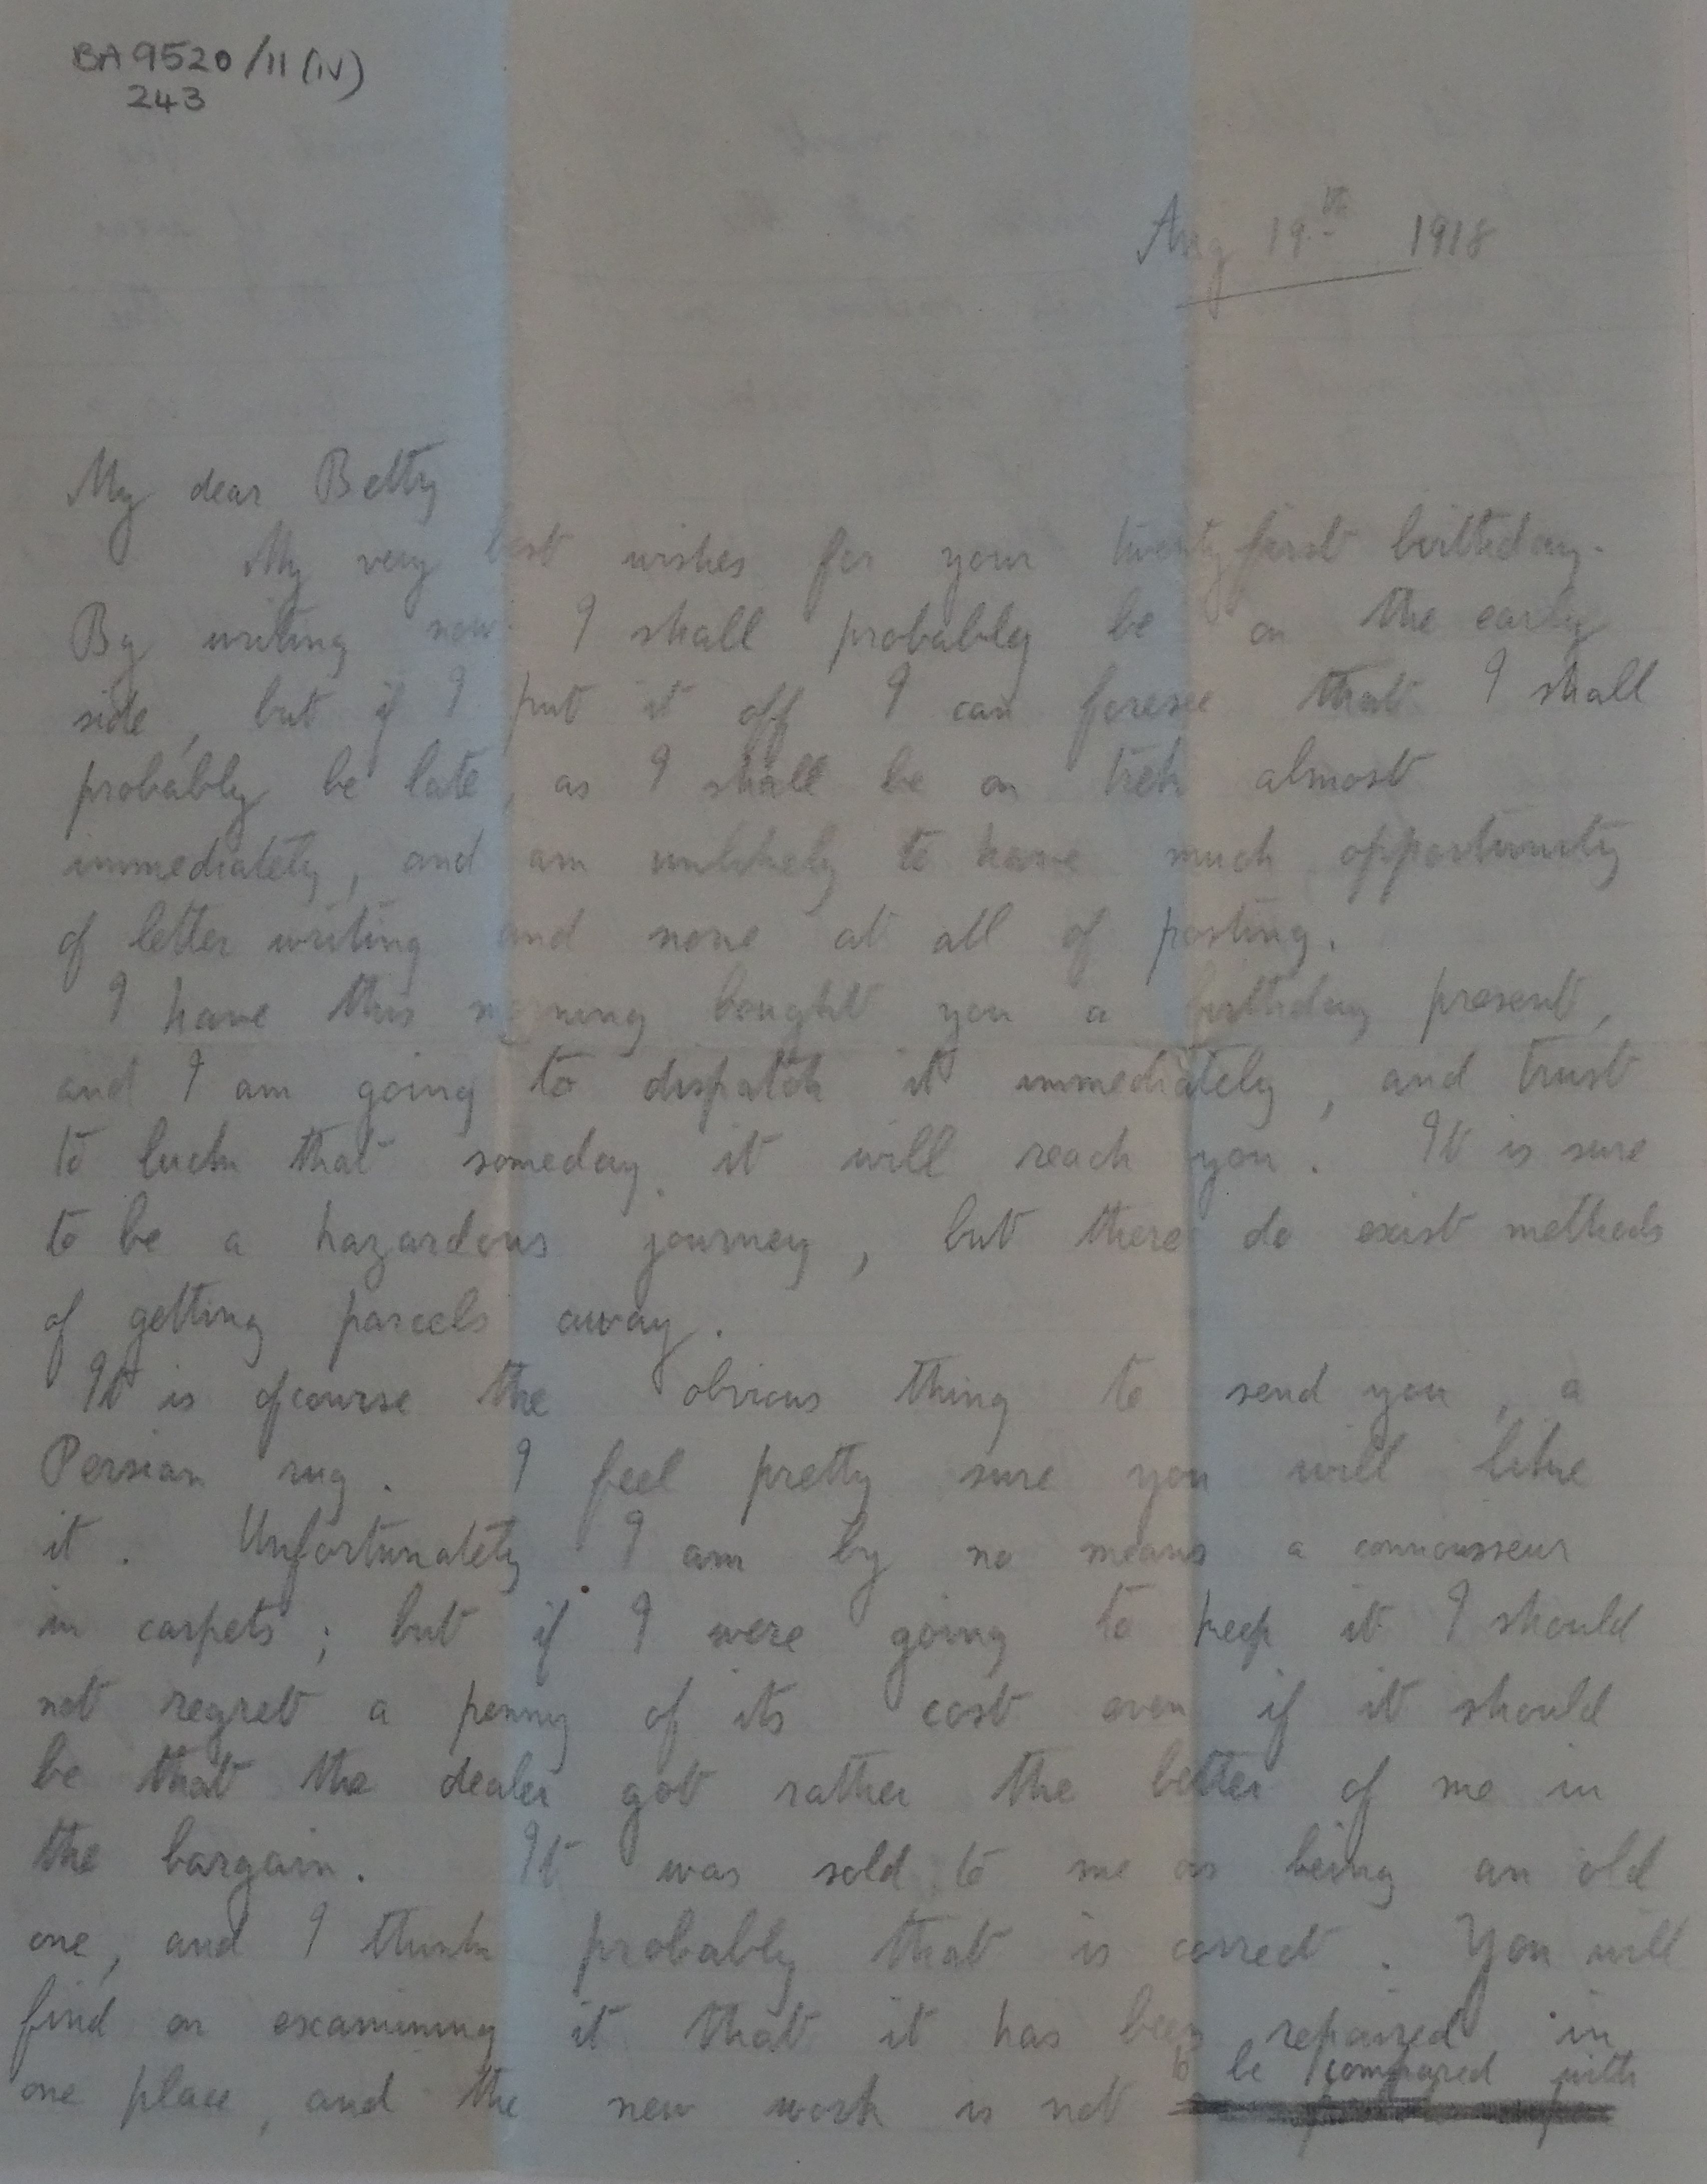 BA9520/11(iv)
243
Aug 19th 1918
My dear Betty
My very best wishes for your twenty first birthday.
By writing now I shall probably be on the early
side, but if I put it off I can foresee that I shall
probably be late, as I shall be on trek almost
immediately, and am unlikely to have much opportunity
of letter writing and none at all of posting.
I have this morning bought you a birthday present,
and I am going to dispatch it immediately, and trust
to luck that someday it will reach you. It is sure
to be a hazardous journey, but there do exist methods
of getting parcels away.
It is ofcourse the obvious thing to send you, a
Persian rug. I feel pretty sure you will like
it. Unfortunately I am by no means a connousseur
in carpets; but if I were going to keep it I should
not regret a penny of its cost even if it should
be that the dealer got rather the better of me in
the bargain. It was sold to me as being an old
one, and I think probably that is correct. You will
find on examining it that it has been repaired in
to be compared with
one place, and the new work is not